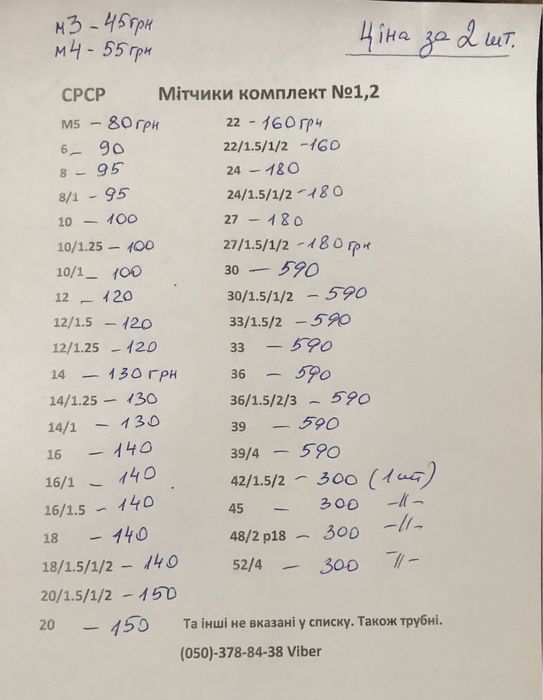 м3 - 45грн
м4 - 55грн
Ціна за 2 шт.
СРСР Мітчики комплект №1,2
М5 - 80грн
6 - 90
8 - 95
8/1 - 95
10 - 100
10/1.25 - 100
10/1 - 100
12 - 120
12/1.5 - 120
12/1.25 - 120
14 - 130 грн
14/1.25 - 130
14/1 - 130
16 - 140
16/1 - 140
16/1.5 - 140
18 - 140
18/1.5/1/2 - 140
20/1.5/1/2 - 150
20 - 150
22 - 160грн
22/1.5/1/2 - 160
24 - 180
24/1.5/1/2 - 180
27 - 180
27/1.5/1/2 - 180 грн
30 - 590
30/1.5/1/2 - 590
33/1.5/2 - 590
33 - 590
36 - 590
36/1.5/2/3 - 590
39 - 590
39/4 - 590
42/1.5/2 - 300 (1 шт)
45 - 300 -//-
48/2 р18 - 300 -//-
52/4 - 300 -//-
Та інші не вказані у списку. Також трубні.
(050)-378-84-38 Viber